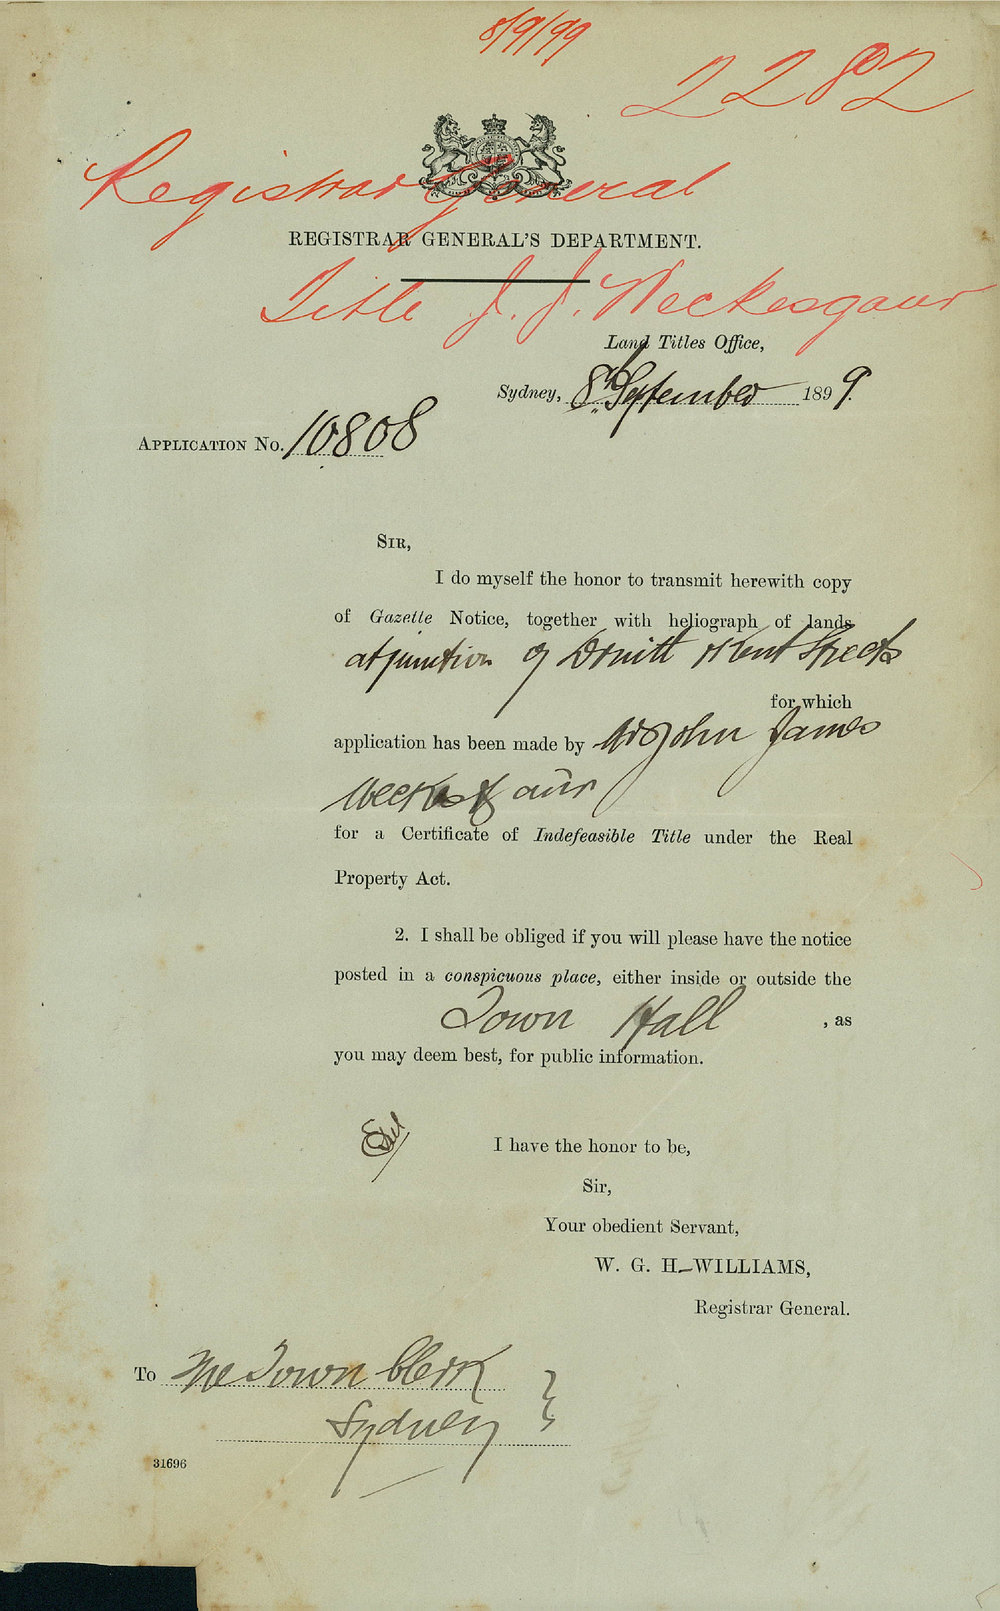 8/9/99
2282
Registrar General
REGISTRAR GENERAL'S DEPARTMENT.
Title J. J. Weekesgaur
Land Titles Office,
Sydney, 8th September 1899.
APPLICATION No. 10808
SIR,
I do myself the honor to transmit herewith copy
of Gazette Notice, together with heliograph of lands
at junction of Druitt & Kent Streets
for which
application has been made by Mr John James
for a Certificate of Indefeasible Title under the Real
Property Act.
2. I shall be obliged if you will please have the notice
posted in a conspicuous place, either inside or outside the
Town Hall , as
you may deem best, for public information.
I have the honor to be,
Sir,
Your obedient Servant,
W. G. H-WILLIAMS,
Registrar General.
To The Town Clerk
Sydney
31696